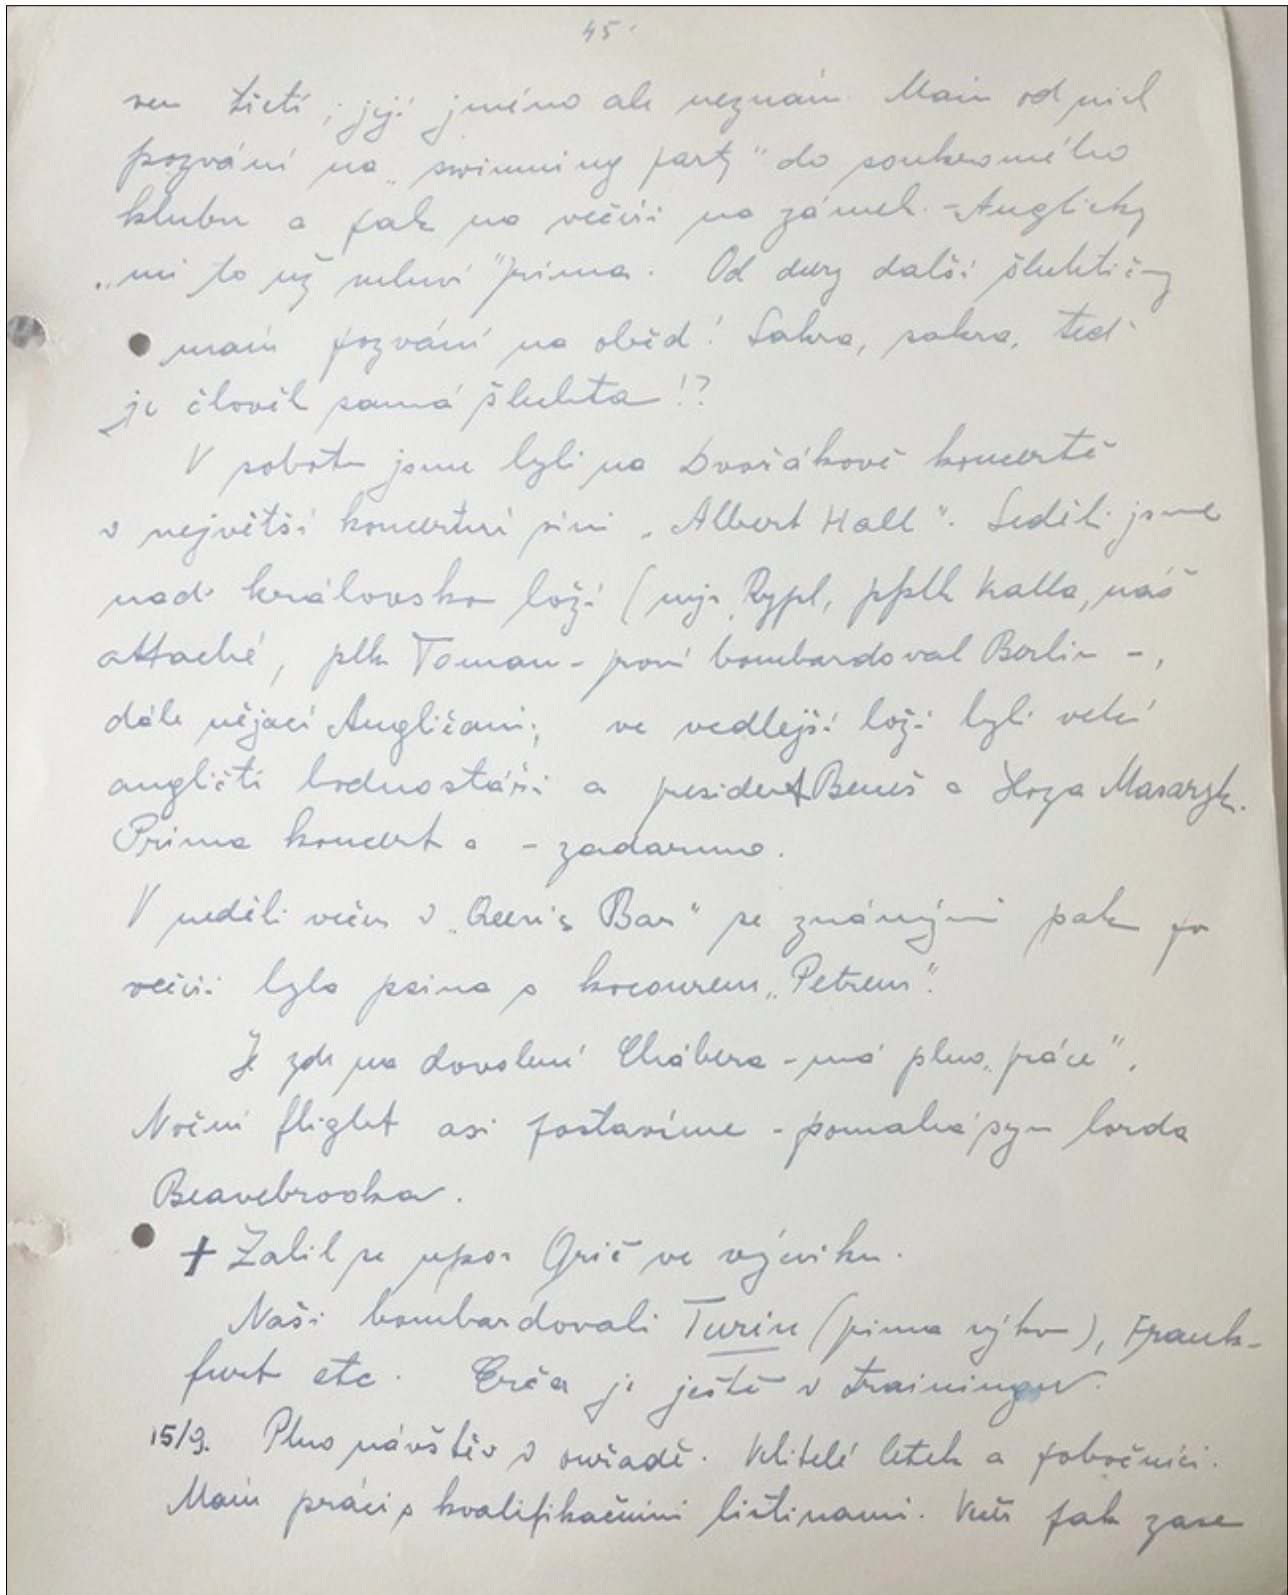 45
sen žietí; její jméno ale neznám. Mám od nich
pozvání na „swimming party" do soukromého
klubu a pak na večeři na zámek. - Anglicky
„mi to už mluví" prima. Od druhy další šlechtičny
mám pozvání na oběd! Sakra, sakra, teď
je člověk samá šlechta!?
V sobotu jsme byli na Dvořákově koncertě
v největší koncertní síni „Albert Hall". Seděli jsme
nad královskou loží (mjr. Rypl, pplk Kalla, náš
attaché, plk Toman - první bombardoval Berlin -,
dále nějací Angličani; ve vedlejší loži byli velcí
angličtí hodnostáři a president Beneš a Honza Masaryk.
Prima koncert a - zadarmo.
V neděli večer v Bar" se známými pak po
večeři byla psina s kocourem „Petrem".
Je zde na dovolené Chábera - má plno „práce".
Noční flight asi postavíme - pomáhá syn lorda
Beavebrooka.
+ Zabil se npor Grič ve výcviku.
Naši bombardovali Turin (prima výkon), Frank-
furt etc. je ještě v trainingu.
15/9. Plno návštěv v úřadě. Velitelé letek a pobočníci.
Mám práci s kvalifikačními listinami. Večer pak zase